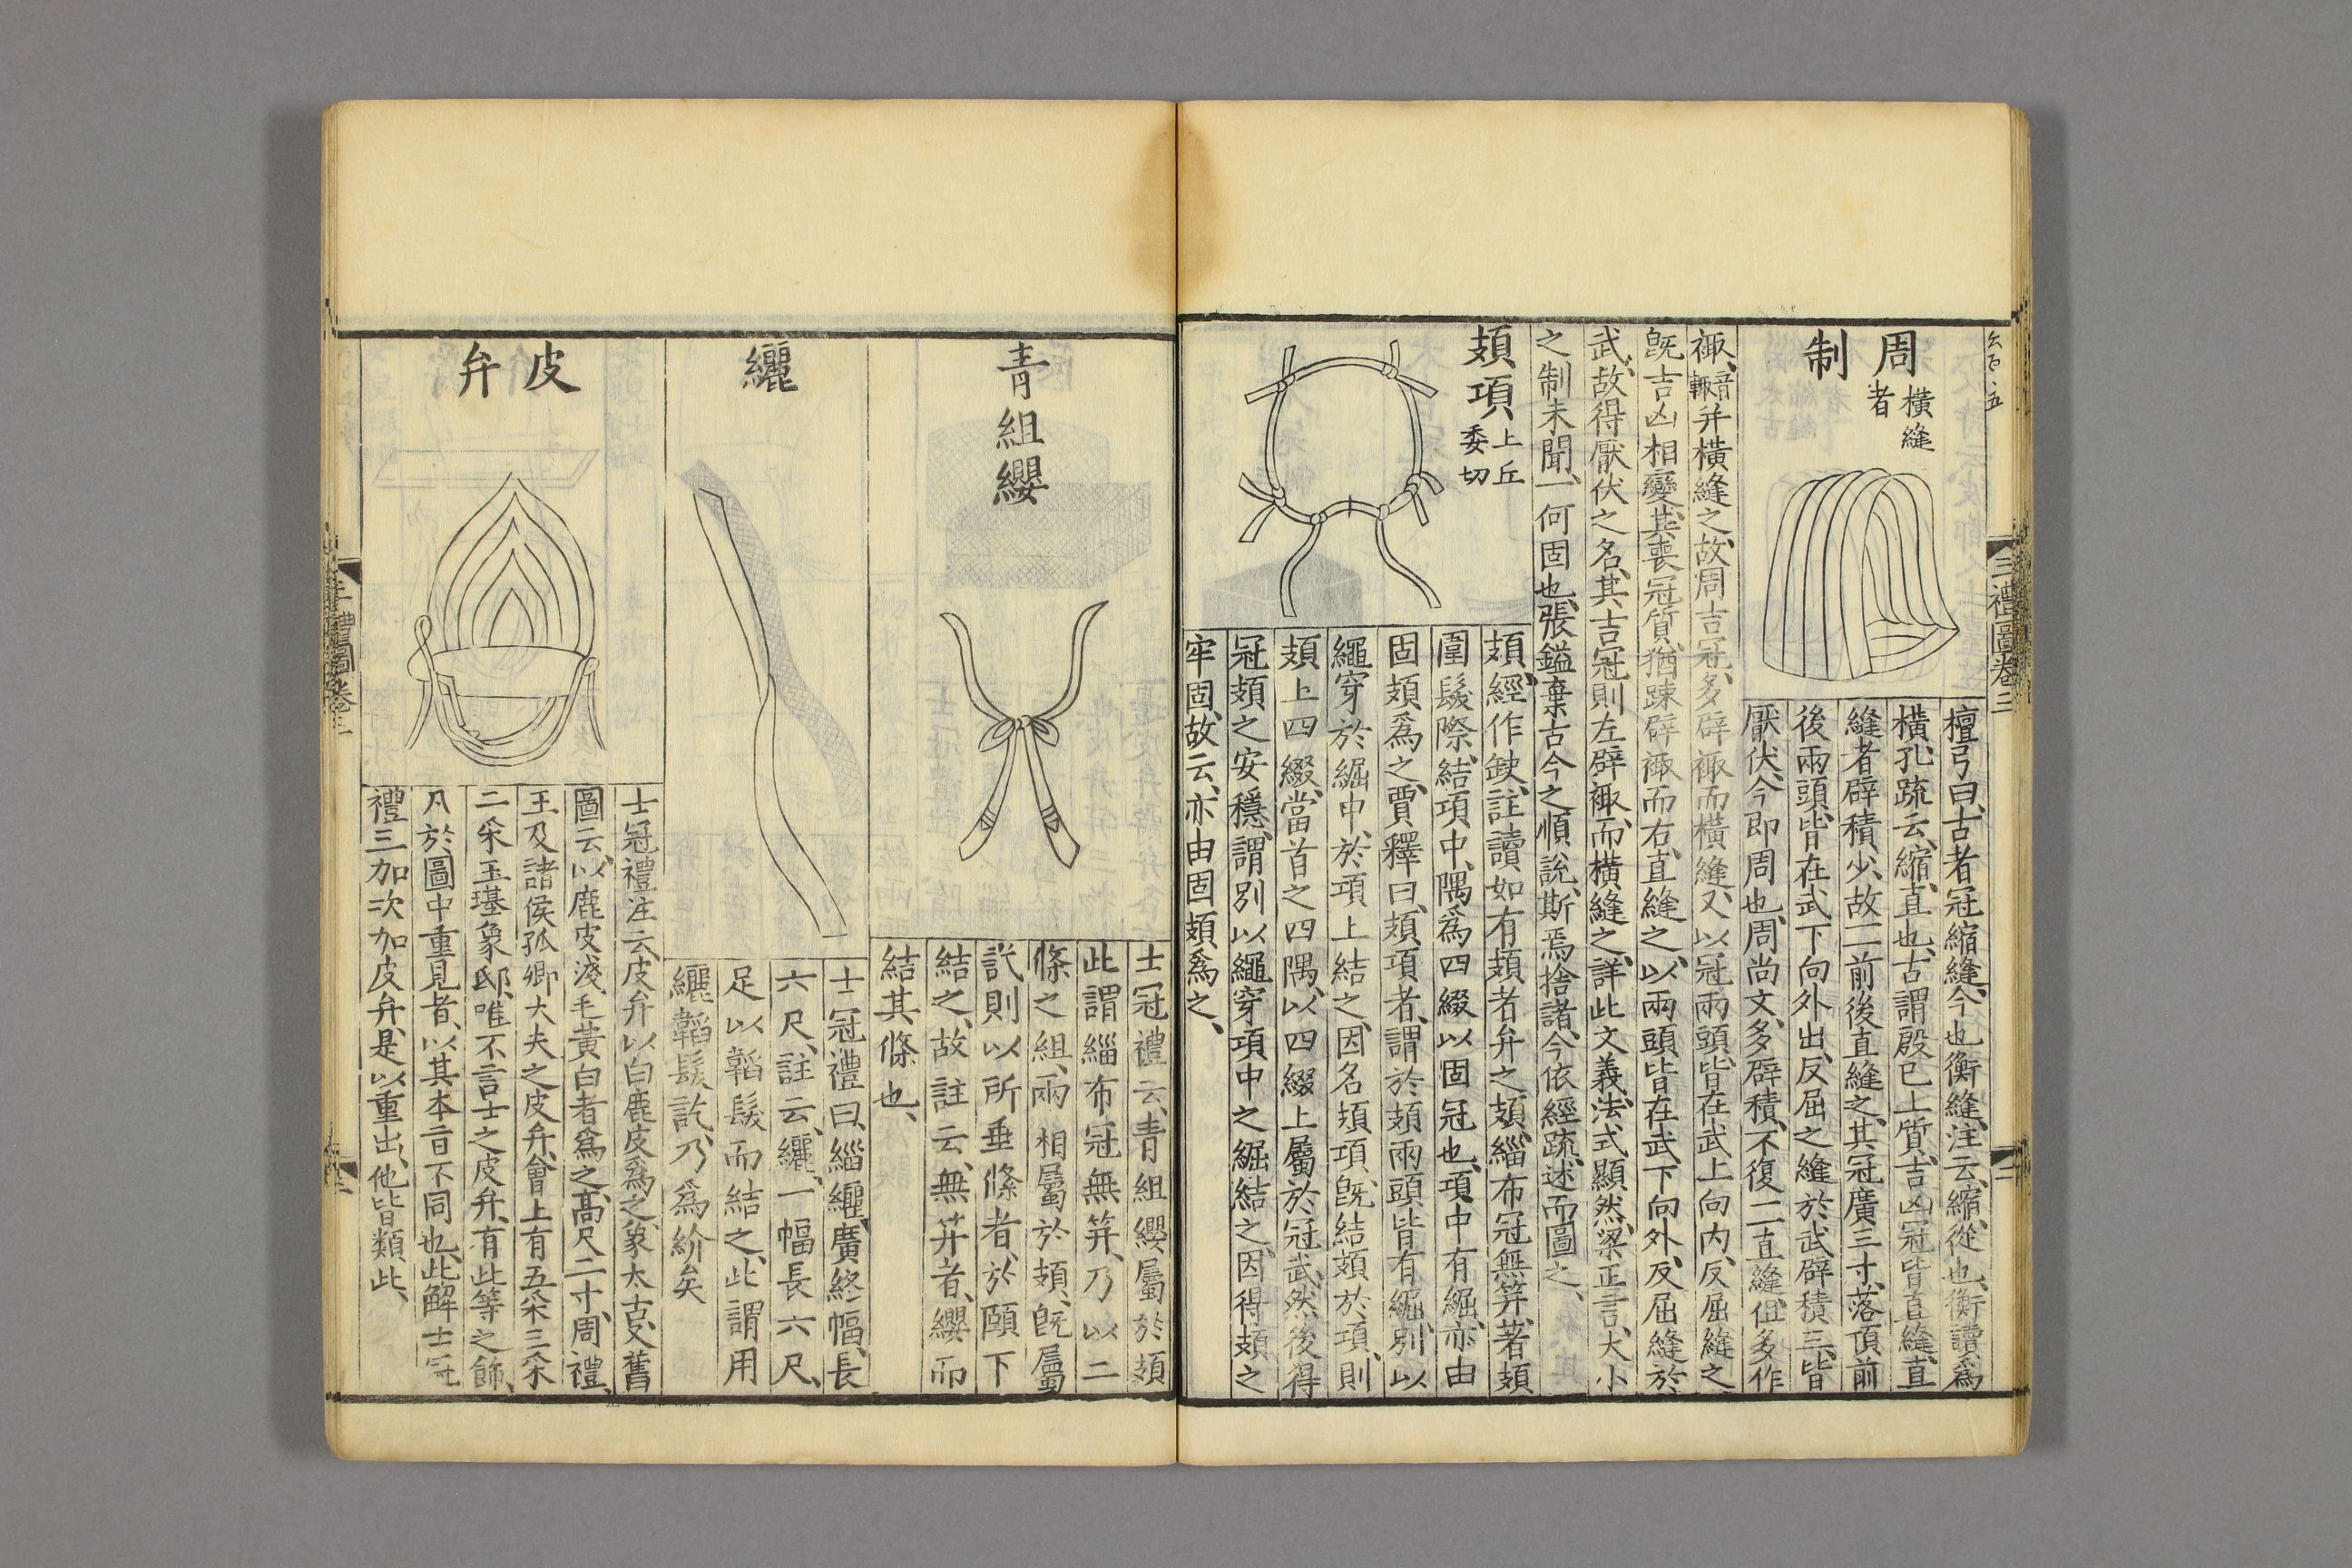 三禮圖卷三
二
周制
橫縫者
檀弓曰、古者冠縮縫、今也衡縫、注云、縮、從也、衡、讀爲
橫、孔疏云、縮、直也、古謂殷已上質、吉凶冠皆直縫、直
縫者、辟積少、故一一前後直縫之、其冠廣三寸、落頂前
後兩頭、皆在武下向外出、反屈之縫於武、辟積三、皆
厭伏、今卽周也、周尚文、多辟積、不復一一直縫、但多作
襵、音輒并橫縫之、故周吉冠、多辟襵而橫縫、又以冠兩頭、皆在武上向内、反屈縫之、
旣吉凶相變、其喪冠質、猶疎辟襵而右、直縫之、以兩頭皆在武下向外、反屈縫於
武、故得厭伏之名、其吉冠則左辟襵、而橫縫之、詳此文義、法式顯然、梁正言、大小
之制未聞、一何固也、張鎰棄古今之順說、斯焉捨諸、今依經疏、述而圖之、
頍項
上丘委切
頍、經作缺、註讀如有頍者弁之頍、緇布冠無笄、著頍
圍髮際、結項中、隅爲四綴以固冠也、項中有䋿、亦由
固頍爲之、賈釋曰、頍項者、謂於頍兩頭皆有䋿、別以
繩穿於䋿中、於項上結之、因名頍項、旣結頍於項、則
頍上四綴、當首之四隅、以四綴上屬於冠武、然後得
冠頍之安穩、謂別以繩穿項中之䋿結之、因得頍之
牢固、故云、亦由固頍爲之、
青組纓
士冠禮云、青組纓屬於頍
此謂緇布冠無笄、乃以二
條之組、兩相屬於頍、旣屬
訖則以所垂條者、於頤下
結之、故註云、無笄者、纓而
結其條也、
纚
士冠禮曰、緇纚、廣終幅、長
六尺、註云、纚、一幅長六尺、
足以韜髮而結之、此謂用
纚韜髮訖、乃爲紒矣
皮弁
士冠禮注云、皮弁以白鹿皮爲之、象太古、又舊
圖云、以鹿皮淺毛黃白者爲之、高尺二寸、周禮、
王及諸侯孤卿大夫之皮弁、會上有五采三采
二采玉璂象邸、唯不言士之皮弁、有此等之飾、
凡於圖中重見者、以其本旨不同也、此解士冠
禮三加次加皮弁、是以重出、他皆類此、
三禮圖卷三